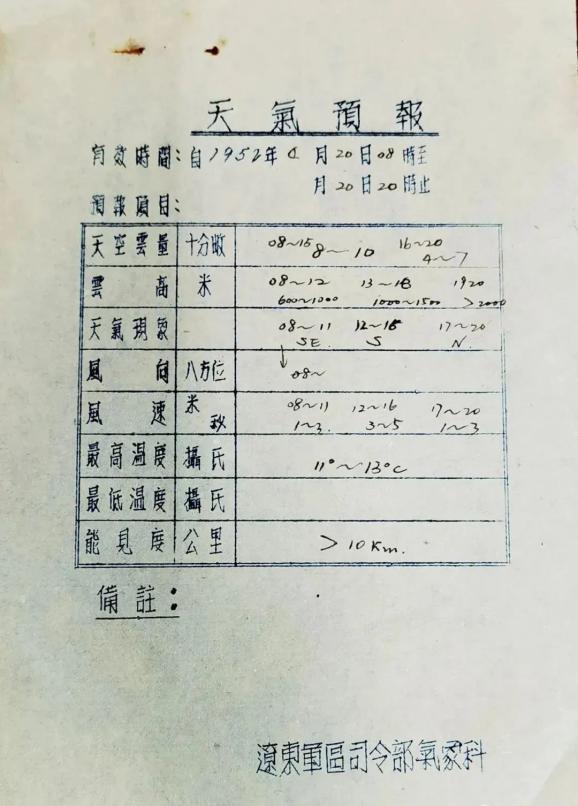 天氣預報
有效時間：自1952年4月20日08時至
月20日20時止
預報項目：
天空雲量 十分收 08～15 8～10 16～20 4～7
雲高 米 08～12 13～18 1920
600～1000 1000～1500 >2000
天氣現象 08～11 12～16 17～20
SE. S N.
風向 八方位 08～
風速 米秒 08～11 12～16 17～20
1～3 3～5 1～3
最高溫度 攝氏 11°～13°C
最低溫度 攝氏
能見度 公里 >10Km.
備註：
遼東軍區司令部氣象科